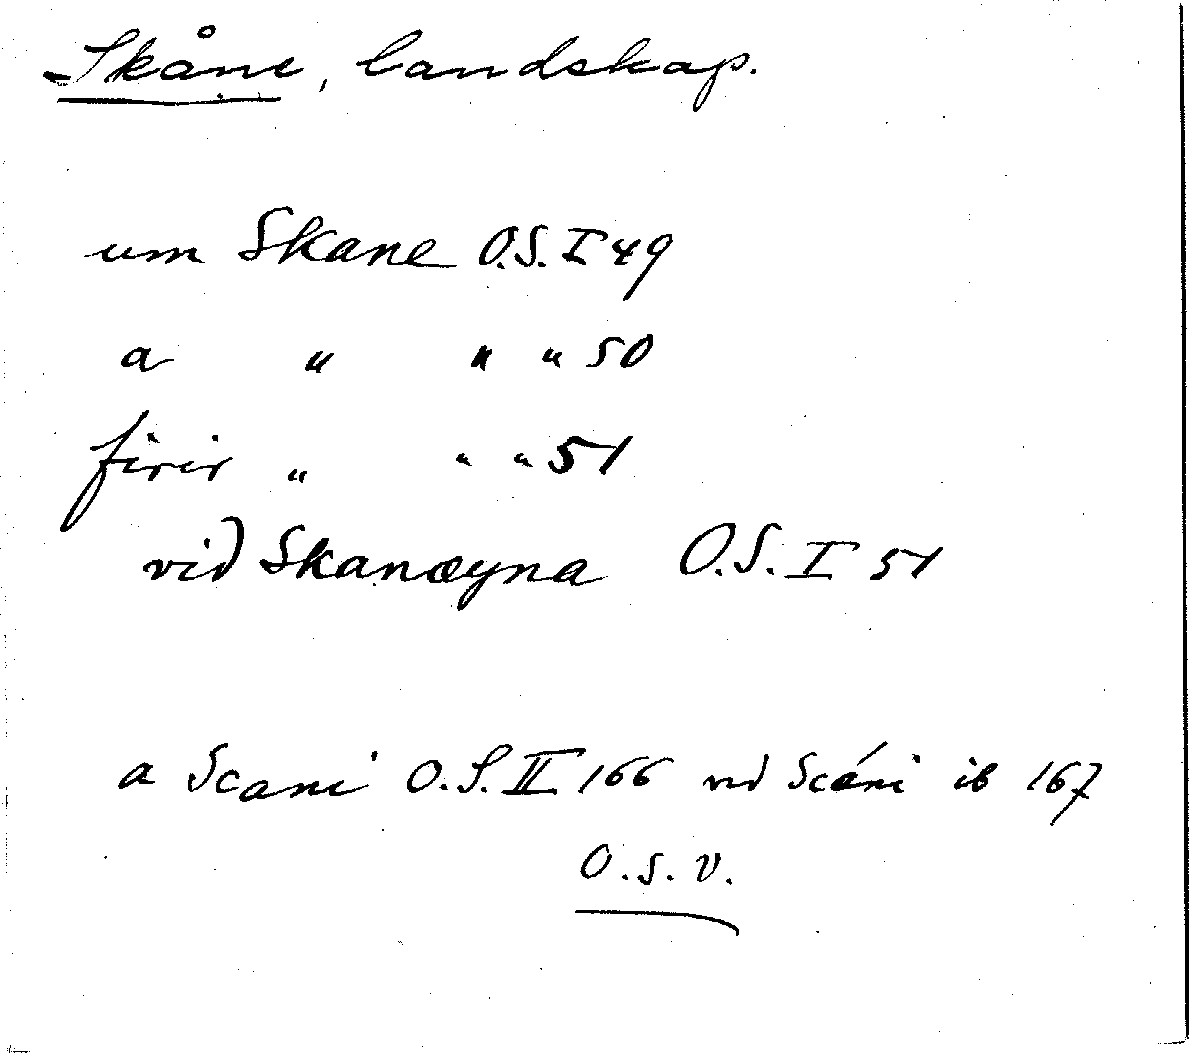 Skåne, landskap.
um Skane O.S. I 49
a " " " 50
firir " " " 51
við Skanæyna O.S. I 51
a Scani O.S. II 166 við Scáni ib 167
O.S.V.